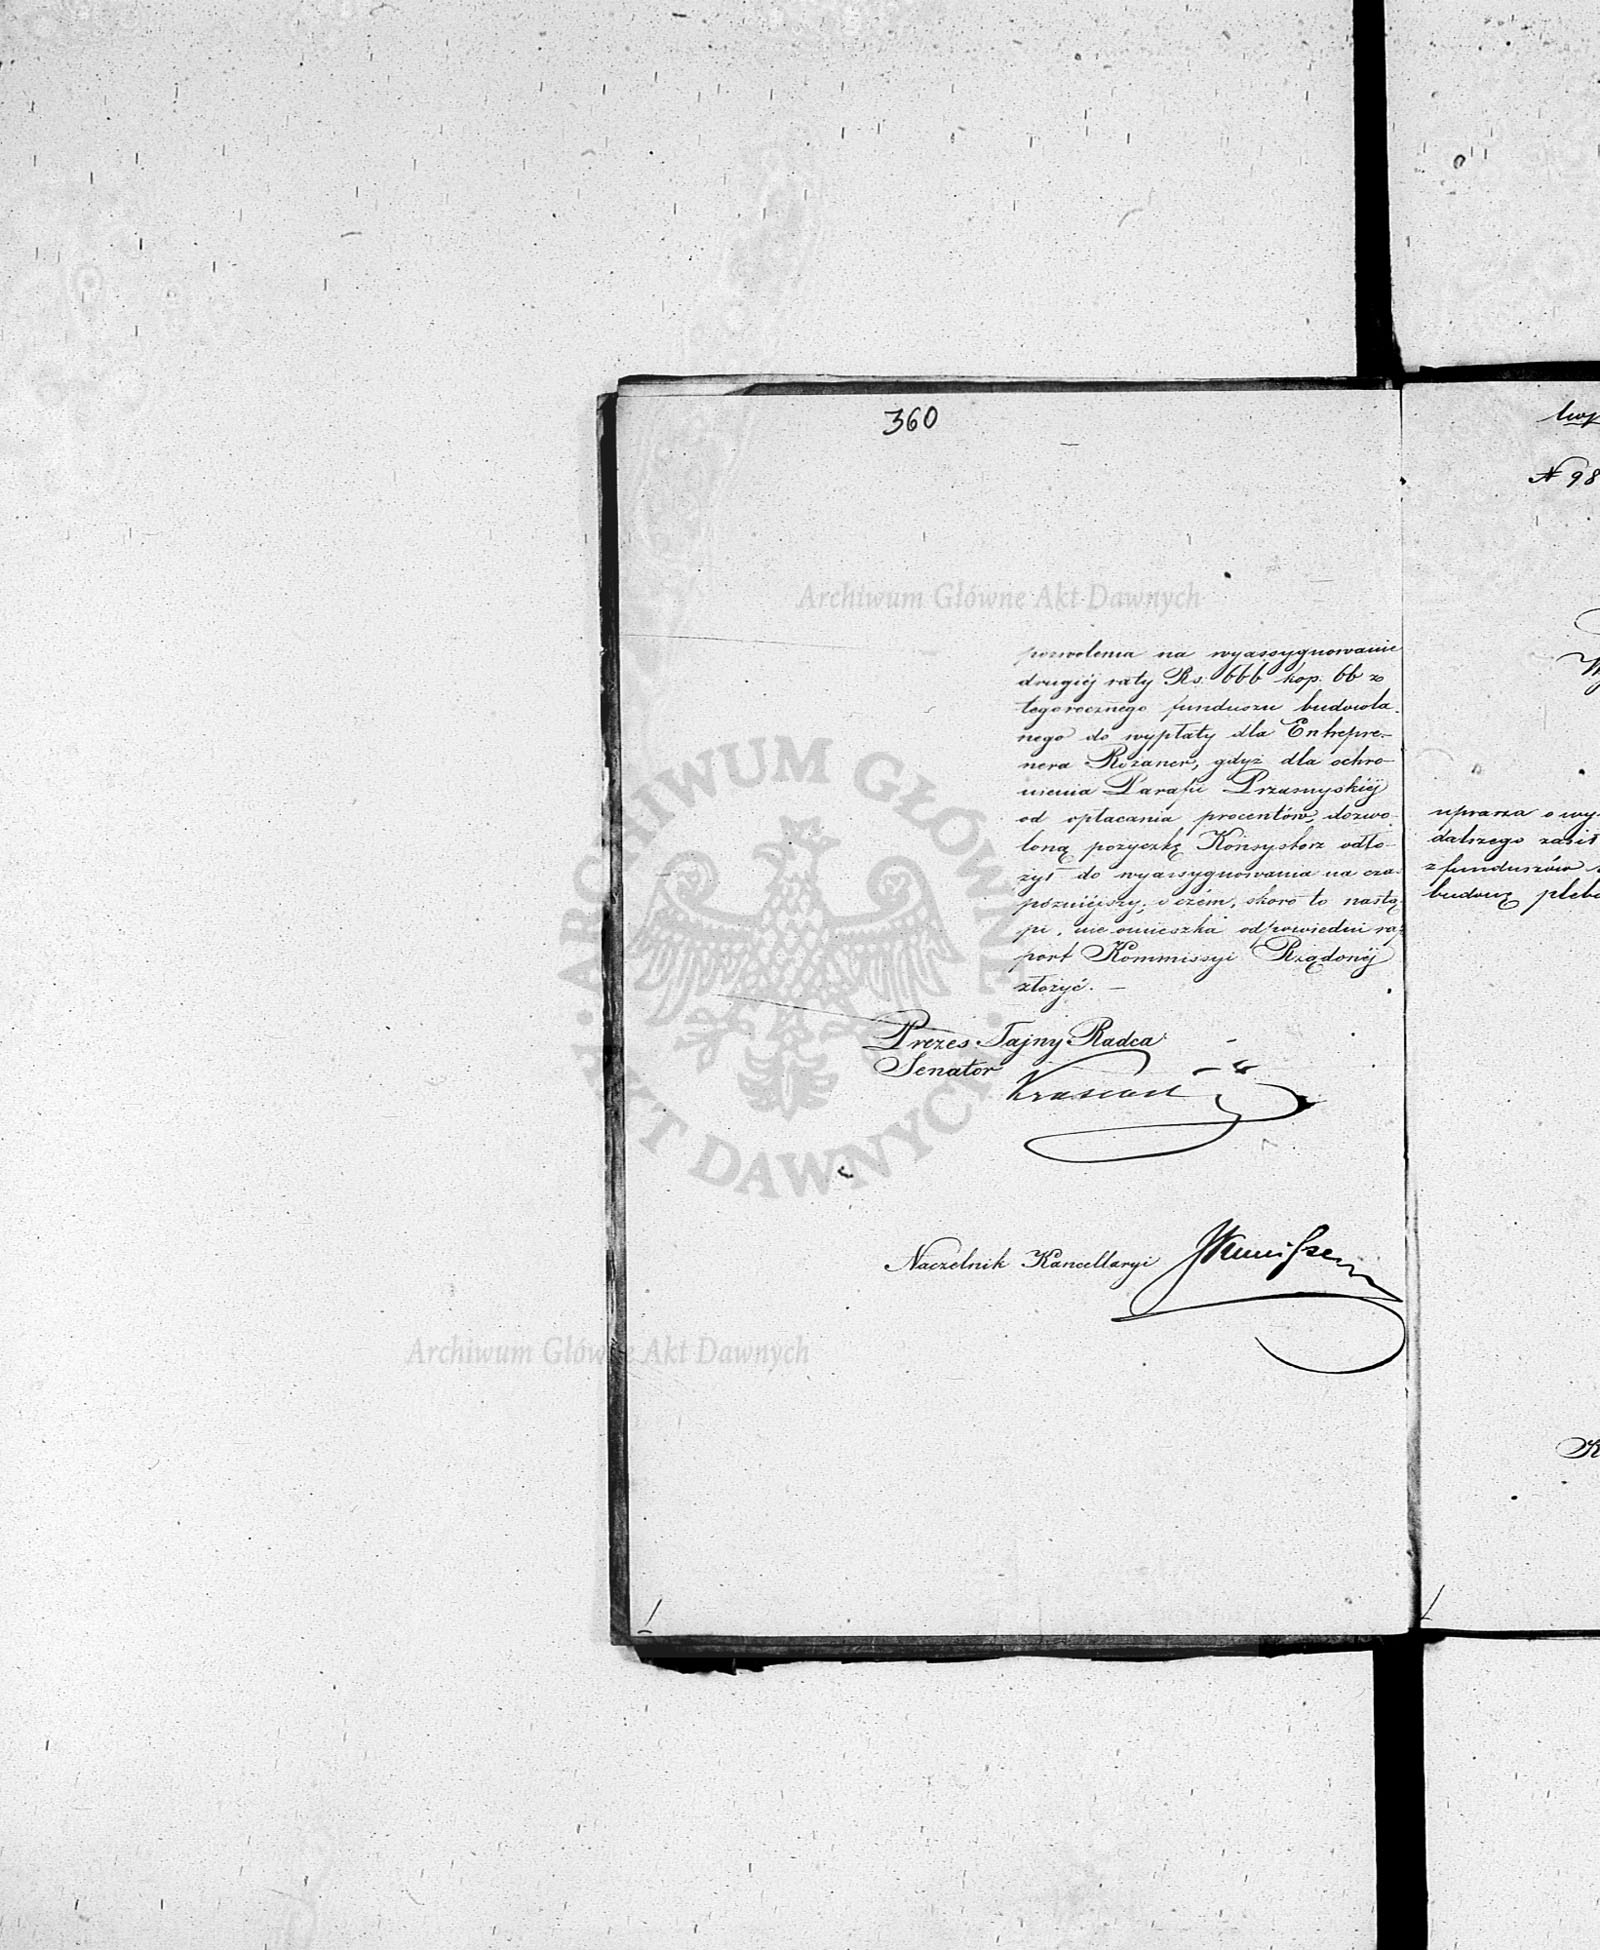 360
Archiwum Główne Akt Dawnych
pozwolenia na wyassygnowanie
drugiéj raty Rs. 666 kop. 66 z
tegorocznego funduszu budowla-
nego do wypłaty dla Entrepre-
nera Rózaner, gdyż dla ochro-
nienia Parafii Przasnyskiéj
od opłacania procentów, dozwo-
loną pożyczkę Konsystorz odło-
żył do wyassygnowania na czas
pózniéjszy; o czém, skoro to nastą-
pi, nie omieszka odpowiedni ra-
port Kommissyi Rządowéj
złożyć. —
Prezes Tajny Radca
Senator
Naczelnik Kancellaryi
ARCHIWUM GŁÓWNE AKT DAWNYCH
Archiwum Główne Akt Dawnych
N 98
uprasza o wy
dalszego zasił
z funduszów
budowę pleba